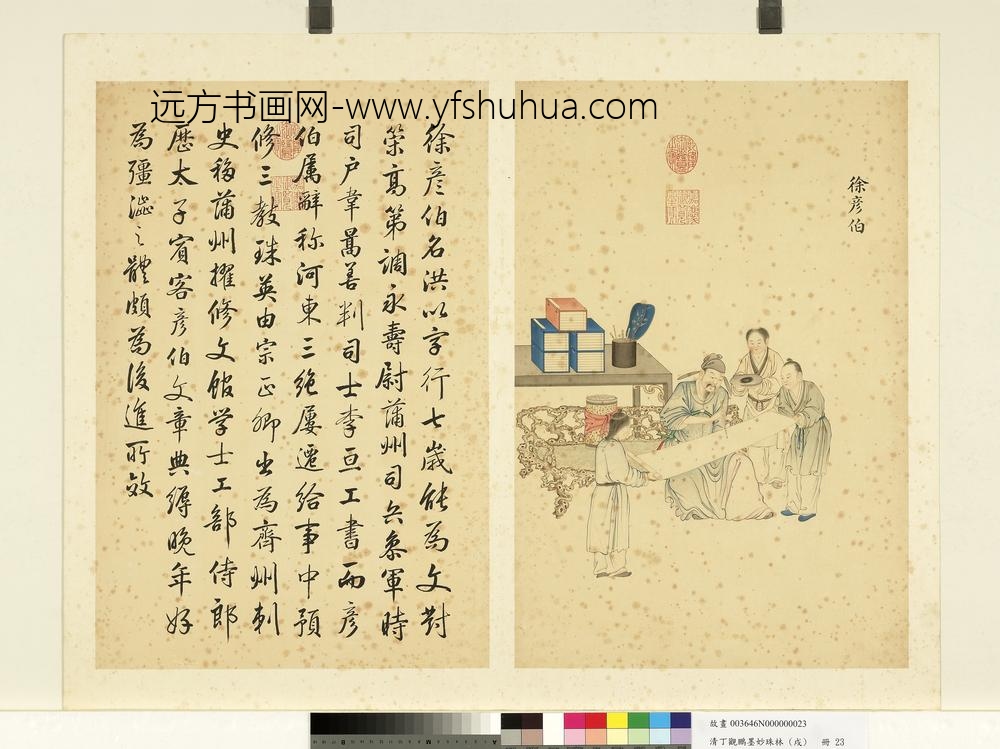 远方书画网-www.yfshuhua.com
徐彦伯
徐彦伯名洪以字行七歲能為文對
策高第調永壽尉蒲州司兵參軍時
司户韋暠善判司士李亘工書而彦
伯属辭称河東三絶屢遷給事中預
修三教珠英由宗正卿出為齊州刺
史移蒲州擢修文館学士工部侍郎
歴太子賓客彦伯文章典縟晚年好
為彊澁之體頗為後進所效
故畫 003646N000000023
清丁觀鵬墨妙珠林(戌) 冊 23